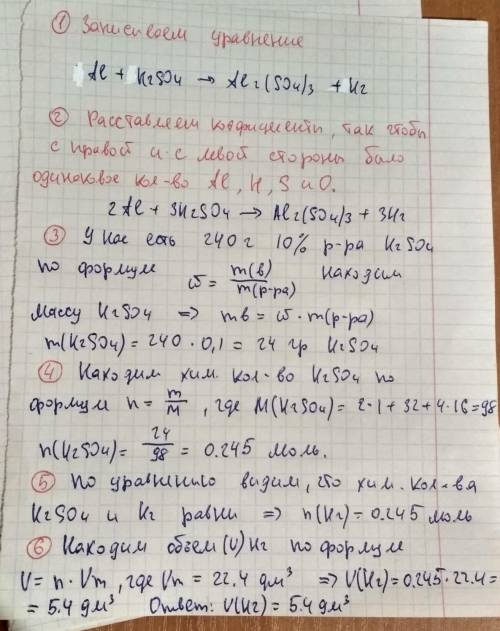 ① Записываем уравнение
Al + H₂SO₄ → Al₂(SO₄)₃ + H₂
② Расставляем коэфициенты, так чтобы
с правой и с левой стороны было
одинаковое кол-во Al, H, S и O.
2Al + 3H₂SO₄ → Al₂(SO₄)₃ + 3H₂
③ У нас есть 240 г 10% р-ра H₂SO₄
по формуле ω = m(в)/m(р-ра) находим
массу H₂SO₄ => mв = ω · m(р-ра)
m(H₂SO₄) = 240 · 0,1 = 24 гр H₂SO₄
④ Находим хим. кол-во H₂SO₄ по
формуле n = m/M, где M(H₂SO₄) = 2·1 + 32 + 4·16 = 98
n(H₂SO₄) = 24/98 = 0.245 моль.
⑤ По уравнению видим, что хим. кол-ва
H₂SO₄ и H₂ равны => n(H₂) = 0.245 моль
⑥ Находим объем (V) H₂ по формуле
V = n · Vm, где Vm = 22.4 дм³ => V(H₂) = 0.245·22.4 =
= 5.4 дм³ Ответ: V(H₂) = 5.4 дм³